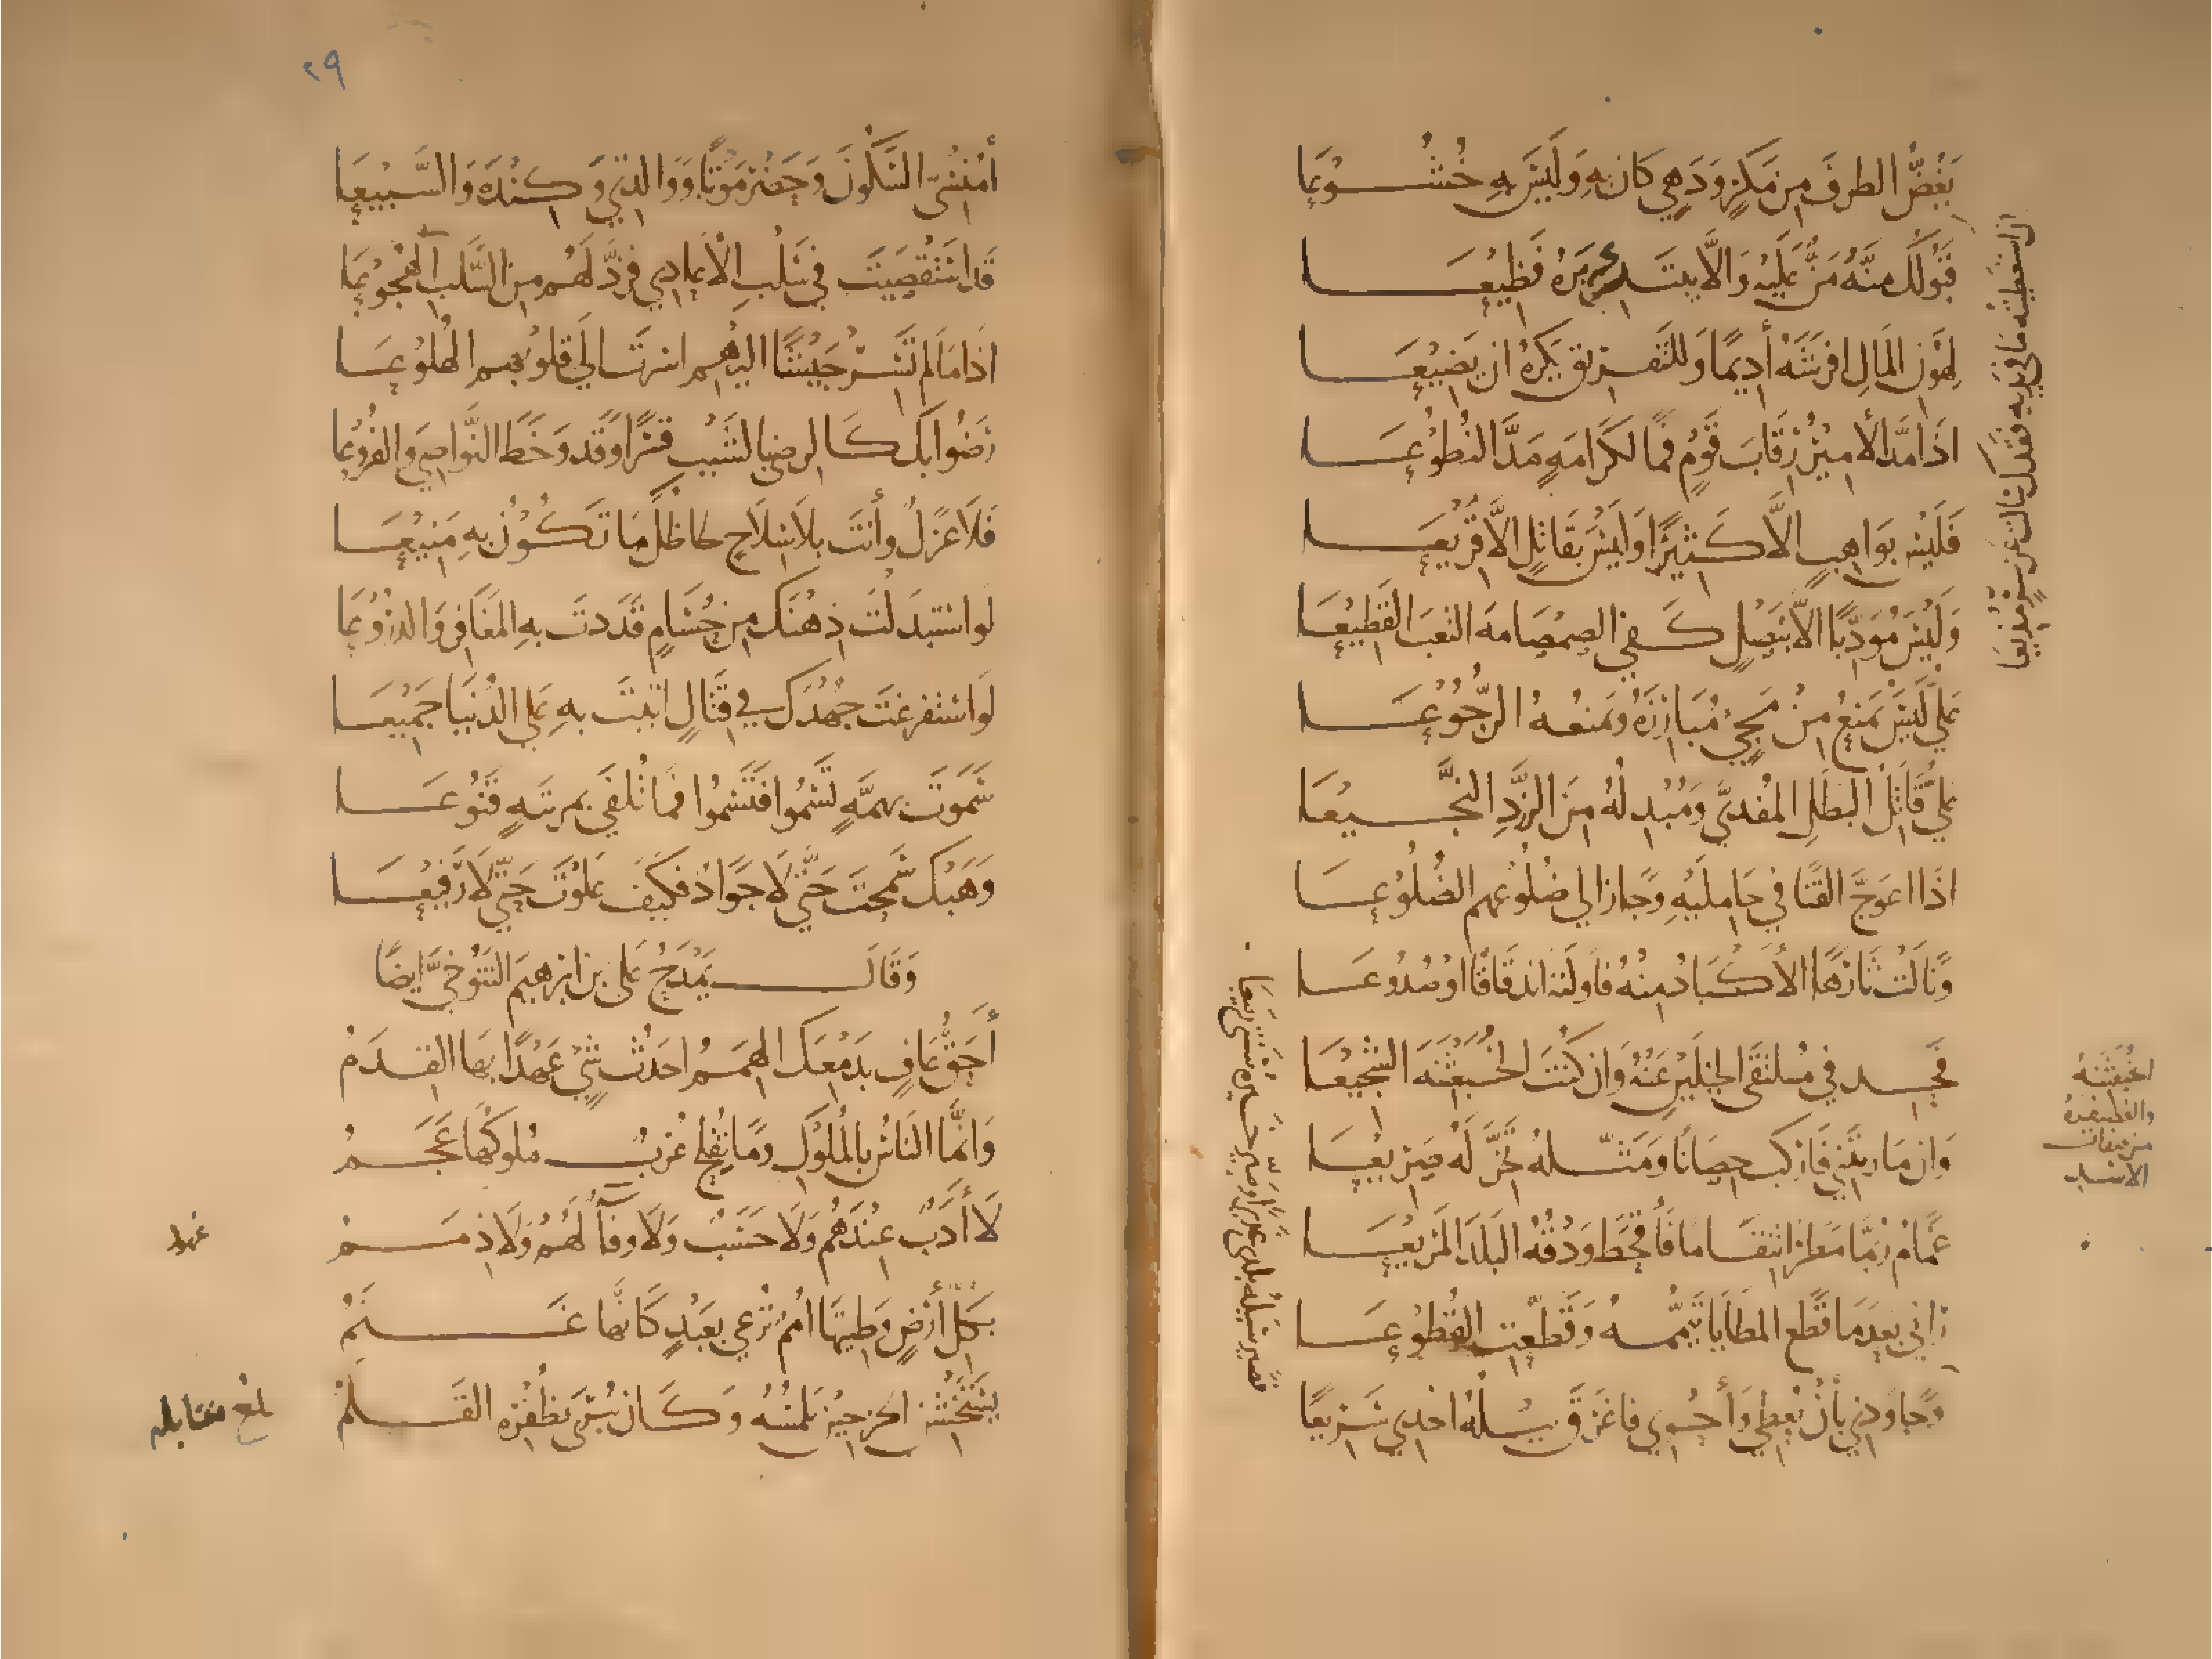 يَغُضُّ الطرفَ مِن مَكرٍ وَدَهيٍ كَان بِهِ وَلَيسَ بِهِ خُشُوْعَا
قَبُولُكَ مِنهُ مَنٌّ عَلَيهِ وَالَّا يبتَدئ يَرَهُ فَظِيْعَا
لِهَوْنِ المَالِ افرشَهُ أَدِيمًا وَللتَفرِيق يَكرَهُ ان يَضِيْعَا
اذَا مَدَّ الأمِيْرُ رِقَابَ قَوْمٍ فمَا لكَرَامَةٍ مَدَّ النُطُوْعَا
فَلَيْسَ بوَاهِبٍ الَّا كَثِيْرًا وَلَيْسَ بقَاتِلٍ الَّا قَرِيْعَا
وَلَيْسَ مُؤَدِّبًا الَّا بنَصْلٍ كَفى الصمصَامَه التعبَ القَطِيْعَا
عَلِيٌّ لَيْسَ يَمنَعُ مِنْ مَجِيْءٍ مُبَارِزَهُ وَيَمنَعُهُ الرُّجُوْعَا
عَلِيٌّ قَاتِلُ البَطَلِ المُفَدَّى وَمُبْدِلُهُ مِنَ الزَّرَدِ النَّجِيْعَا
اذَا اعوَجَّ القَنَا فِي حَامِلَيْهِ وَجَازَ الي ضُلُوعِهِم الضُلُوْعَا
وَنَالَتْ ثَارَهَا الأَكْبَادُ مِنْهُ فأَولَتْهُ اندِقَاقًا او صُدُوعَا
فَحِد فِي مُلتَقَى الخَيْلَيْنِ عَنْهُ وَان كُنْتَ الخُبَعْثَنَةَ الشجِيْعَا
وَانْ مَارَيْتَنِي فَارْكَب حِصَانًا وَمَثِّلهُ تَخِرَّ لَهُ صَرِيْعَا
غَمَامٌ رُبَّمَا مَطَرَ انتِقَامًا فَأَقحَطَ وَدْقُهُ البَلَدَ المَرِيْعَا
رَآني بَعدَمَا قَطَعَ المَطَايَا تَيَمُّمُهُ وَقَطَّعَتِ القُطُوْعَا
فصَير سَيلُه بَلَدِي غَدِيرًا وصَيَّر خَيرُه سَنَتِي رَبيعَا
وَجَاوَدَنِي بأنْ يُعطِي وَأَحْوِي فاغرَقَ سَيلُهُ اخذِي سَرِيْعًا
اذا استعطيته مَا في يَدَيه فقدك سَالتَ عَن سرٍّ مُذيعَا
الخبعثنه
والغضنفره
من صفات
الاسد
٢٩
أمُنْسِيَّ السَّكُونَ وَحَضْرَمَوْتًا وَوَالِدَتِي وَكِنْدَةَ وَالسَّبِيْعَا
قَد اسْتَقْصَيْتَ فِي سَلْبِ الأَعَادِي فَرُدَّ لَهُم مِن السَّلَبِ الهُجُوْعَا
اذَا مَا لَم تُسِرْ جَيْشًا الَيْهِم اسَرْتَ الَي قلُوبِهِم الهُلُوْعَا
رَضُوا بكَ كَالرضَا بالشَيْبِ قَسْرًا وَقَد وَخَطَ النَّوَاصِيَ وَالفُرُوْعَا
فَلَا عَزَلٌ وَأنتَ بِلَا سِلَاحٍ لحاظكَ مَا تَكُوْنُ بِهِ مَنِيْعَا
لَو اسْتَبدَلْتَ ذِهْنَكَ مِن حُسَامٍ قَدَدتَ بِهِ المَغَافِرَ وَالدرُوْعَا
لَو اسْتفرغْتَ جُهْدَكَ فِي قِتَالٍ اتَيْتَ بِهِ عَلَى الدُنْيَا جَمِيْعَا
سَمَوْتَ بهِمَّةٍ تَسْمُوا فَتَسْمُوا فَمَا تُلْفَى بمَرتَبَةٍ قَنُوْعَا
وَهَبْكَ سَمَحْتَ حَتَّى لَا جَوَادٌ فَكَيْفَ عَلَوْتَ حَتَّى لَا رَفِيْعَا
وَقَالَ يَمْدَحُ عَلي بن ابرَهيمَ التَنُوخِيَّ ايضًا
أَحَقُّ عَافٍ بدَمْعِكَ الهِمَمُ احدَثُ شَيْءٍ عَهْدًا بهَا القِدَمُ
وَانَّمَا النَاسُ بالمُلُوْكِ وَمَا تُفْلِحُ عُرْبٌ مُلُوكُهَا عَجَمُ
لَا أَدَبٌ عِنْدَهُمْ وَلَا حَسَبٌ وَلَا وَفَآءٌ لَهُمْ وَلَا ذِمَمُ
بكُلِّ أَرْضٍ وَطِيتُهَا أُمَمٌ تُرْعَى بِعَبْدٍ كَانَّهَا غَنَمُ
يَسْتَخْشِنُ الخزَّ حِيْنَ يَلْمسُهُ وَكَانَ يُبْرَى بِظُفْرِهِ القَلَمُ
بلغ مقابله